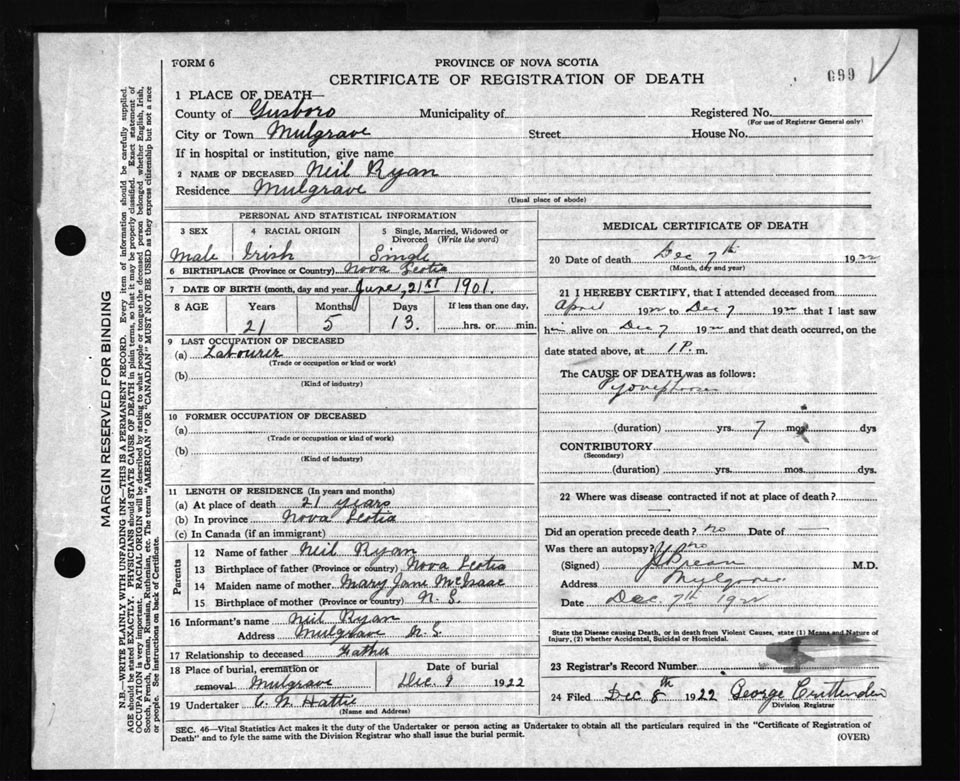 FORM 6
PROVINCE OF NOVA SCOTIA
CERTIFICATE OF REGISTRATION OF DEATH
699
1 PLACE OF DEATH—
County of Gusboro Municipality of Registered No.
(For use of Registrar General only)
City or Town Mulgrave Street House No.
If in hospital or institution, give name
2 NAME OF DECEASED Neil Ryan
Residence Mulgrave
(Usual place of abode)
PERSONAL AND STATISTICAL INFORMATION
3 SEX 4 RACIAL ORIGIN 5 Single, Married, Widowed or Divorced (Write the word)
Male Irish Single
6 BIRTHPLACE (Province or Country) Nova Scotia
7 DATE OF BIRTH (month, day and year) June, 21st 1901.
8 AGE Years Months Days If less than one day,
21 5 13. hrs. or min.
9 LAST OCCUPATION OF DECEASED
(a) Labourer
(Trade or occupation or kind or work)
(b)
(Kind of industry)
10 FORMER OCCUPATION OF DECEASED
(a)
(Trade or occupation or kind of work)
(b)
(Kind of industry)
11 LENGTH OF RESIDENCE (In years and months)
(a) At place of death 21 years
(b) In province Nova Scotia
(c) In Canada (if an immigrant)
Parents
12 Name of father Neil Ryan
13 Birthplace of father (Province or country) Nova Scotia
14 Maiden name of mother Mary Jane McIsaac
15 Birthplace of mother (Province or country) N. S.
16 Informant's name Neil Ryan
Address Mulgrave N. S.
17 Relationship to deceased Father
18 Place of burial, cremation or removal Mulgrave Date of burial Dec. 9 1922
19 Undertaker Hattie
(Name and Address)
MEDICAL CERTIFICATE OF DEATH
20 Date of death Dec 7th 1922
(Month, day and year)
21 I HEREBY CERTIFY, that I attended deceased from
April 1922 to Dec 7 1922 that I last saw
him alive on Dec 7 1922 and that death occurred, on the
date stated above, at 1 P. m.
The CAUSE OF DEATH was as follows:
(duration) yrs. 7 mos. dys
CONTRIBUTORY
(Secondary)
(duration) yrs. mos. dys.
22 Where was disease contracted if not at place of death?
Did an operation precede death? no Date of
Was there an autopsy? no
(Signed) M.D.
Address Mulgrave
Date Dec. 7th 1922
State the Disease causing Death, or in death from Violent Causes, state (1) Means and Nature of
Injury, (2) whether Accidental, Suicidal or Homicidal.
23 Registrar's Record Number
24 Filed Dec 8th 1922 George Crittenden
Division Registrar
SEC. 46—Vital Statistics Act makes it the duty of the Undertaker or person acting as Undertaker to obtain all the particulars required in the "Certificate of Registration of
Death" and to fyle the same with the Division Registrar who shall issue the burial permit.
(OVER)
MARGIN RESERVED FOR BINDING
N.B.—WRITE PLAINLY WITH UNFADING INK—THIS IS A PERMANENT RECORD. Every item of information should be carefully supplied.
AGE should be stated EXACTLY. PHYSICIANS should STATE CAUSE OF DEATH in plain terms, so that it may be properly classified. Exact statement of
OCCUPATION is very important. RACIAL ORIGIN will be described by stating to what people or tongue the deceased person belonged whether English, Irish,
Scotch, French, German, Russian, Ruthenian, etc. The terms "AMERICAN" OR "CANADIAN" MUST NOT BE USED as they express citizenship but not a race
or people. See instructions on back of Certificate.